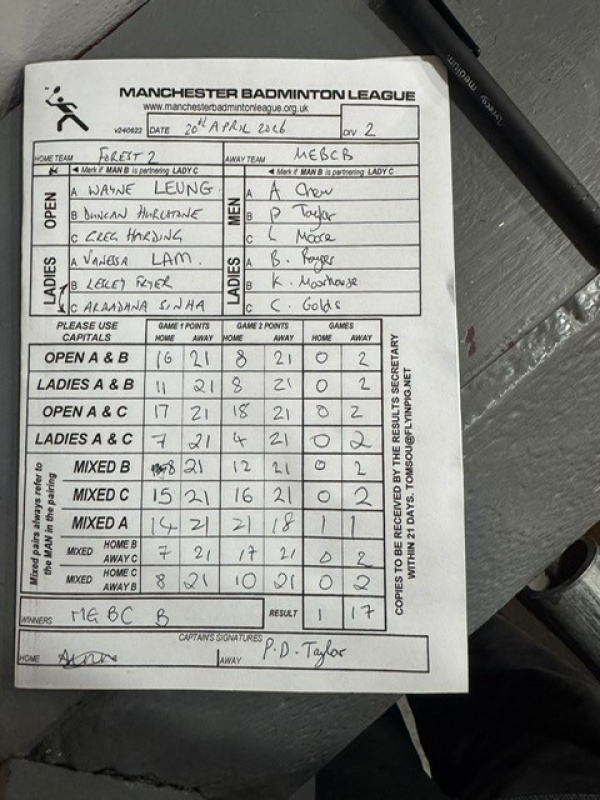 MANCHESTER BADMINTON LEAGUE
www.manchesterbadmintonleague.org.uk
v240622 DATE 20th APRIL 2026 DIV 2
HOME TEAM FOREST 2 AWAY TEAM MEBCB
◄ Mark if MAN B is partnering LADY C ◄ Mark if MAN B is partnering LADY C
OPEN A WAYNE LEUNG MEN A A Chew
B DUNCAN HURLSTONE B P Taylor
C GREG HARDING C L Moore
LADIES A VANESSA LAM. LADIES A B. Royer
B LESLEY FRYER B K. Moorhouse
C ARAADANA SINHA C C. Golds
PLEASE USE CAPITALS GAME 1 POINTS GAME 2 POINTS GAMES
HOME AWAY HOME AWAY HOME AWAY
OPEN A & B 16 21 8 21 0 2
LADIES A & B 11 21 8 21 0 2
OPEN A & C 17 21 18 21 0 2
LADIES A & C 7 21 4 21 0 2
Mixed pairs always refer to the MAN in the pairing
MIXED B 8 21 12 21 0 2
MIXED C 15 21 16 21 0 2
MIXED A 14 21 21 18 1 1
MIXED HOME B AWAY C 7 21 17 21 0 2
MIXED HOME C AWAY B 8 21 10 21 0 2
WINNERS MEBC B RESULT 1 17
CAPTAIN'S SIGNATURES
HOME AWAY P.D. Taylor
COPIES TO BE RECEIVED BY THE RESULTS SECRETARY
WITHIN 21 DAYS. TOMSOU@FLYINPIG.NET
medium